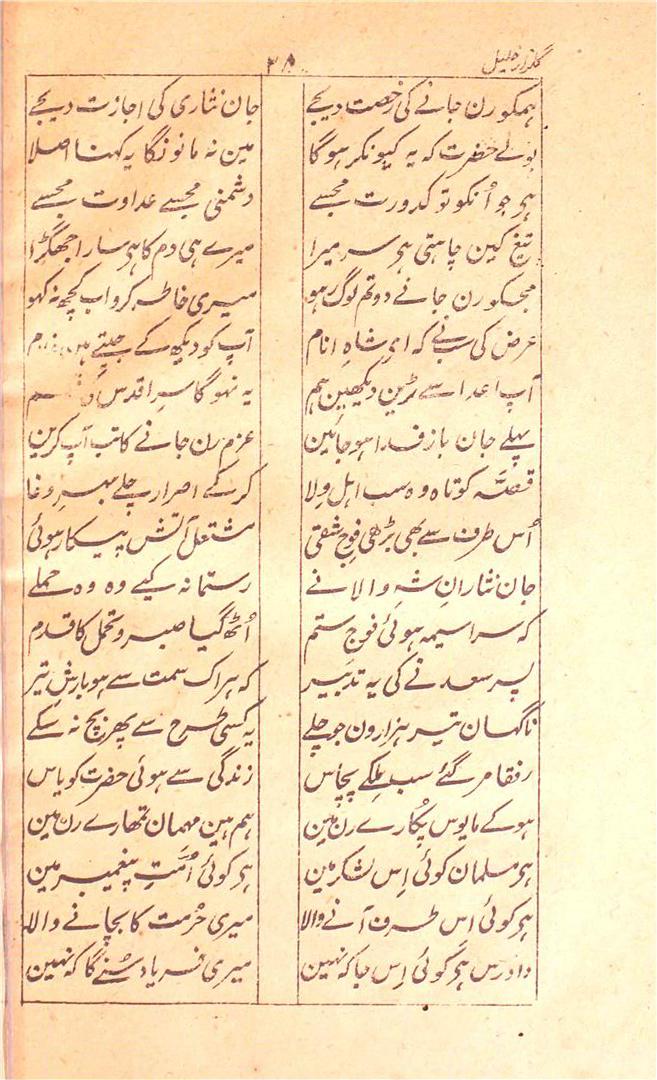 گلزار خلیل
۳۸
ہمکو رن جانے کی رخصت دیجے جان نثاری کی اجازت دیجے
بولے حضرت کہ یہ کیونکر ہوگا مین نہ مانونگا یہ کہنا اصلا
ہر جو اُنکو تو کدورت مجسے دشمنی مجسے عداوت مجسے
تیغ کین چاہتی ہر سر میرا میرے ہی دم کا ہر سارا جھگڑا
مجکو رن جانے دو تم لوگ رہو میری خاطر کرو اب کچھ نہ کہو
عرض کی سب نے کہ ای شاہِ انام آپ کو دیکھ کے جیتے ہین
آپ اعدا سے لڑین دیکھین ہم یہ نہوگا سرِ اقدس
پہلے جان باز فدا ہو جائین عزم رن جانے کا تب آپ کرین
قصّہ کوتاہ وہ سب اہل وِلا کرکے اصرار چلے بہر وغا
اُس طرف سے بھی بڑھی فوجِ شقی مشتعل آتش پیکار ہوئی
جان نثارانِ شہِ والا نے رستمانہ کیے وہ وہ حملے
کہ سراسیمہ ہوئی فوجِ ستم اُٹھ گیا صبر و تحمل کا قدم
پسر سعد نے کی یہ تدبیر کہ ہر اک سمت سے ہو بارشِ تیر
ناگہان تیر ہزارون جو چلے یہ کسی طرح سے پھر بچ نہ سکے
رفقا مر گئے سب ملکے پچاس زندگی سے ہوئی حضرت کو یاس
ہوکے مایوس پُکارے رن مین ہم ہین مہمان تمھارے رن مین
ہر مسلمان کوئی اِس لشکر مین ہر کوئی اُمّتِ پیغمبر مین
ہر کوئی اس طرف آنے والا میری حُرمت کا بچانے والا
دادرس ہر کوئی اِس جا کہ نہین میری فریاد سُنے گا کہ نہین